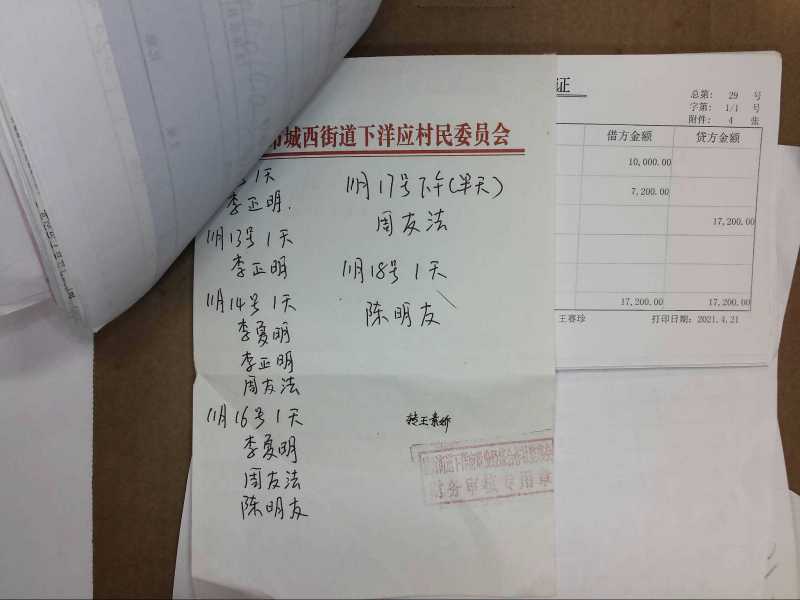 城西街道下洋应村民委员会
1天
李正明.
11月13号1天
李正明
11月14号1天
李爱明
李正明
周友法
11月16号1天
李爱明
周友法
陈明友
11月17号下午(半天)
周友法
11月18号1天
陈明友
转王素娇
财务审核专用章
证
总第: 29 号
字第: 1/1 号
附件: 4 张
借方金额 贷方金额
10,000.00
7,200.00
17,200.00
17,200.00 17,200.00
王赛珍 打印日期: 2021.4.21